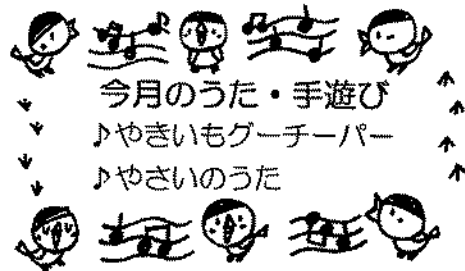 今月のうた・手遊び
♪やきいもグーチーパー
♪やさいのうた